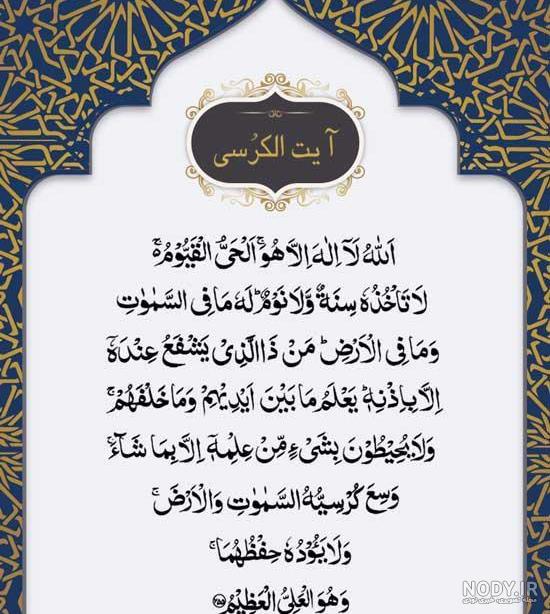 آیت الکرُسی
اَللّٰهُ لَآ اِلٰهَ اِلَّا هُوَۚ اَلْحَیُّ الْقَیُّوْمُ ۬ۚ
لَا تَاْخُذُهٗ سِنَةٌ وَّلَا نَوْمٌؕ لَهٗ مَا فِی السَّمٰوٰتِ
وَمَا فِی الْاَرْضِؕ مَنْ ذَا الَّذِیْ یَشْفَعُ عِنْدَهٗۤ
اِلَّا بِاِذْنِهٖؕ یَعْلَمُ مَا بَیْنَ اَیْدِیْهِمْ وَمَا خَلْفَهُمْۚ
وَلَا یُحِیْطُوْنَ بِشَیْءٍ مِّنْ عِلْمِهٖۤ اِلَّا بِمَا شَآءَۚ
وَسِعَ کُرْسِیُّهُ السَّمٰوٰتِ وَالْاَرْضَۚ
وَلَا یَـُٔوْدُهٗ حِفْظُهُمَاۚ
وَهُوَ الْعَلِیُّ الْعَظِیْمُ ۝۲۵۵
NODY.IR